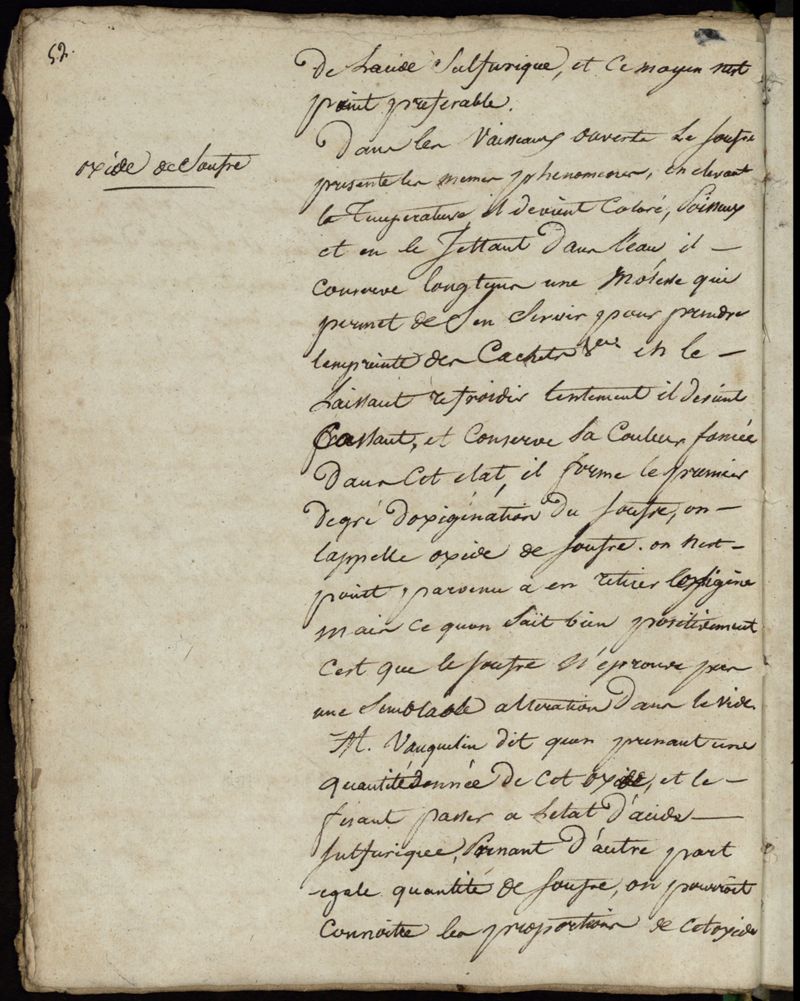 52.
De Lacide Sulfurique, et Ce moyen nest
point preferable.
oxide de Soufre
Dans les Vaisseaux ouverts Le soufre
presente les memes phenomenes, en elevant
la Temperature il devient Coloré, Poisseux
et en le Jettant Dans l'eau il —
Conserve longtems une Molesse qui
permet de S'en Servir pour prendre
lempreinte des Cachets &ca en le —
Laissant refroidir lentement il devient
Cassant, et Conserve Sa Couleur foncée
Dans Cet etat, il forme le premier
Degré Doxigénation Du soufre, on —
lappelle oxide de soufre. on nest —
point parvenu a en retirer loxigène
mais ce quon Sait bien positivement
C'est que le soufre N'éprouve pas
une Semblable alteration Dans le vide.
M. Vauquelin dit quen prenant une
quantité donnée De Cet oxide, et le —
fesant passer a Letat D'acide —
Sulfurique, Prenant D'autre part
egale quantité de soufre, on pourroit
Connoitre les proportions de Cet oxide